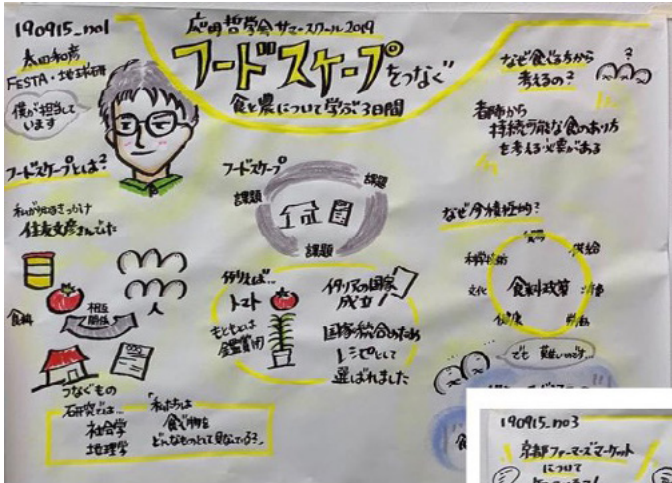 190915_no1
応用哲学会サマースクール2019
フードスケープをつなぐ
食と農について学ぶ3日間
太田和彦
FESTA・地球研
僕が担当して
います
フードスケープとは?
食料
相互
関係
人
つなぐもの
研究では…
社会学
地理学
「私たちは
食べ物を
フードスケープ
課題
課題
課題
例えば…
トマト
もともとは
鑑賞用
イタリアの国家
成立
国家統合のため
レシピとして
選ばれました
なぜ食べる方から
考えるの?
都市から
持続可能な食のあり方
を考える必要がある
なぜ今積極的?
供給
文化
食料政策
労働
健康
でも 難しいのです…
190915_no3
京都ファーマーズマーケット
について